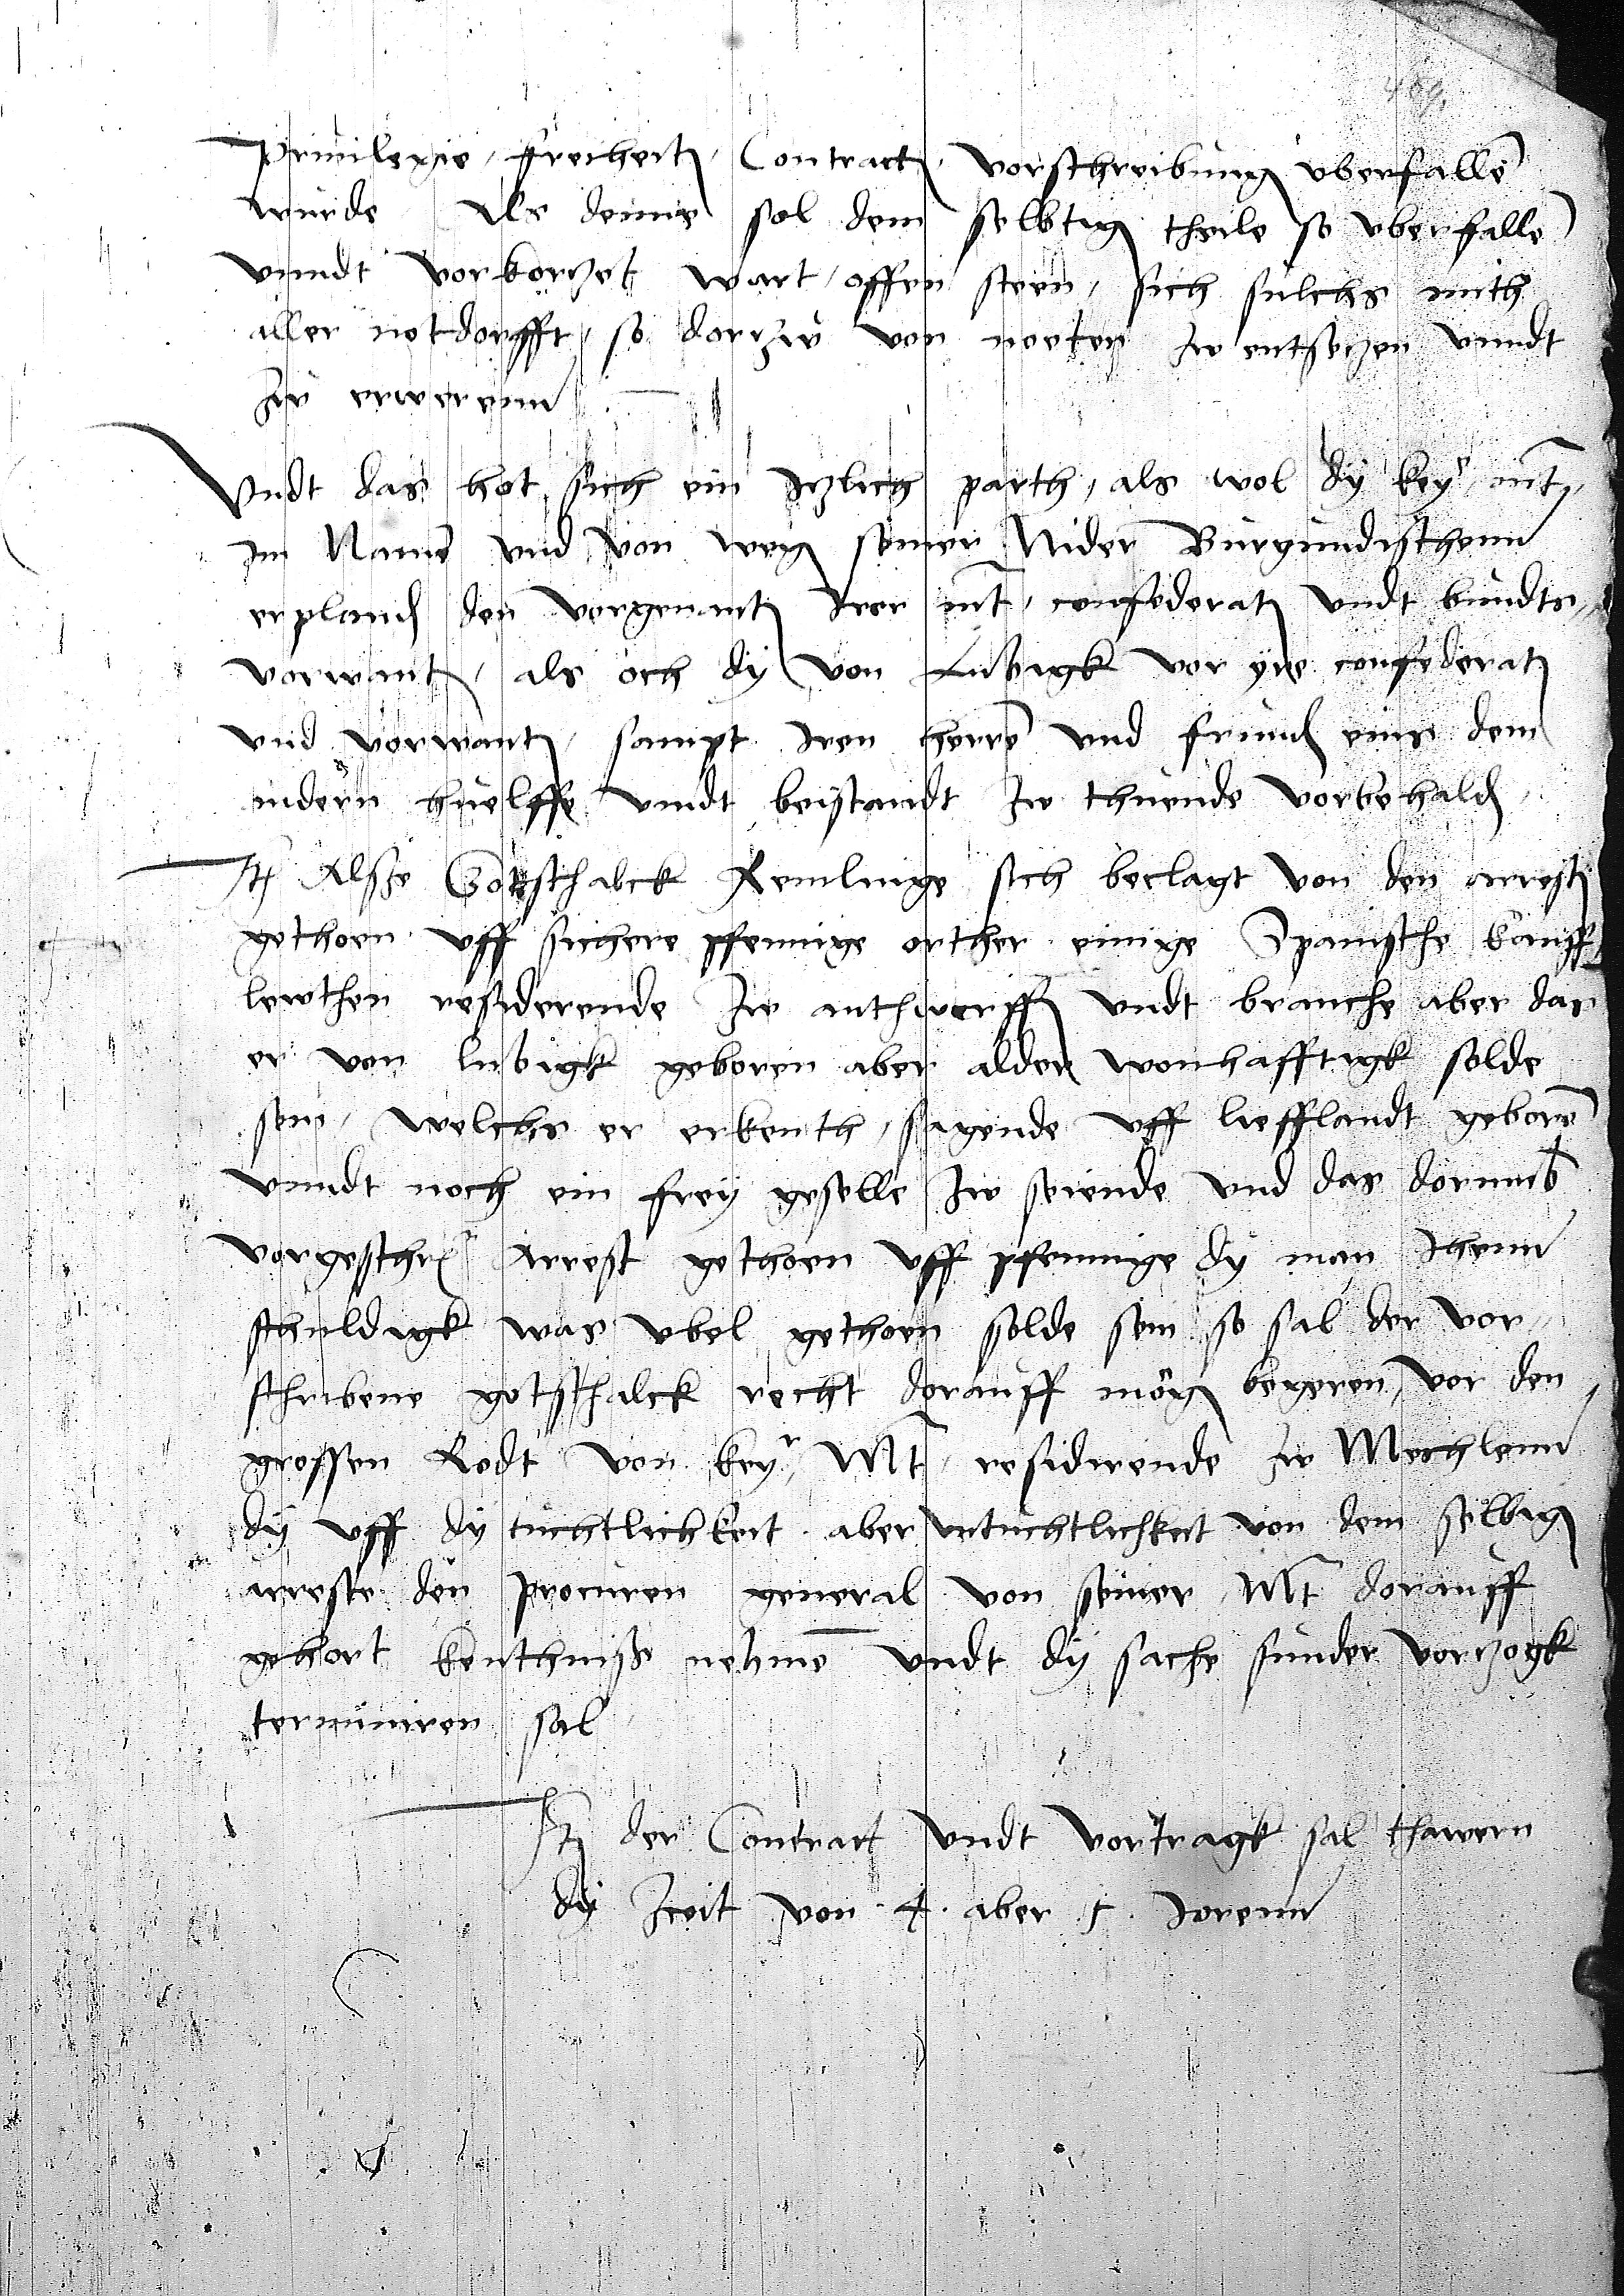 priuilegie, freiheit, Contract, vorschreibung vberfalle
wurde Als denne sol dem selbtig theile so vberfalle
vnndt vorkorzet wart, offen steen, sich sulchs mith
aller notdorfft, so dorzw von noeten zw entsetzen vnndt
zw erwerenn
Vndt das hot sich ein Itzlich parth, als wol dy key mt,
Im Name vnd von weg seiner Nider Burgundischenn
erpland den vorgenant Irer mt, confederat vndt bundts,
vorwant, als och dy von Lubigk vor yre confederat
vnd vorwant, sampt Iren herre vnd frund eins dem
andern huelffe vndt beystandt zw thuende vorbehald,
It Alsze Gotschalck Remlinge sich beclagt von den arrest
gethoen vff sichere pfennige orther einige Spanische kauff
lewthen residerende zw anthwerff vndt brauche aber das
er von lubigk geboren aber alder wonhafftigk solde
sein, welchs er erkenth, sagende vff liefflandt gebore
vnndt noch ein frey geselle zw seiende vnd das dorumb
vorgeschr Arrest gethoen vff pfennige dy man Ihenn
schuldigk was vbel gethoen solde sein so sal der vor,
schribene gotschalck recht dorauff mög begeren, vor den,
grossen Rodt von key, Mt, residirende zw Mechlenn
dy vff dy tuchtlichkeit aber vntuchtlichkeit von dem selbig
arreste den procuren general von seiner Mt dorauff
gehort kenthnisze nehme vndt dy sache sunder vorzogk
terminiren sal
It der Contract vndt vortragk sal thawern
dy Zeit von .4. aber 5. Jorenn